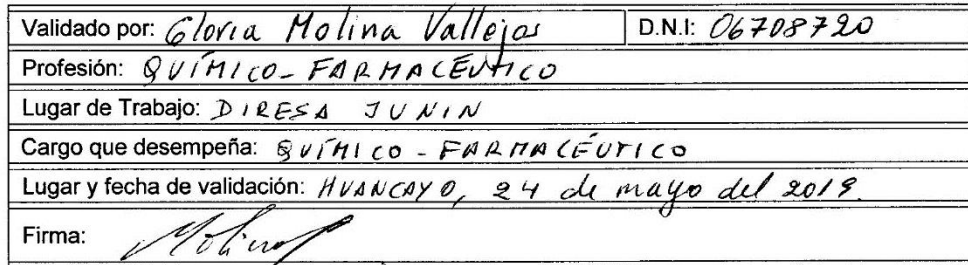 Validado por: Gloria Molina Vallejos D.N.I: 06708720
Profesión: QUÍMICO-FARMACÉUTICO
Lugar de Trabajo: DIRESA JUNIN
Cargo que desempeña: QUÍMICO - FARMACÉUTICO
Lugar y fecha de validación: HUANCAYO, 24 de mayo del 2019.
Firma: Molina